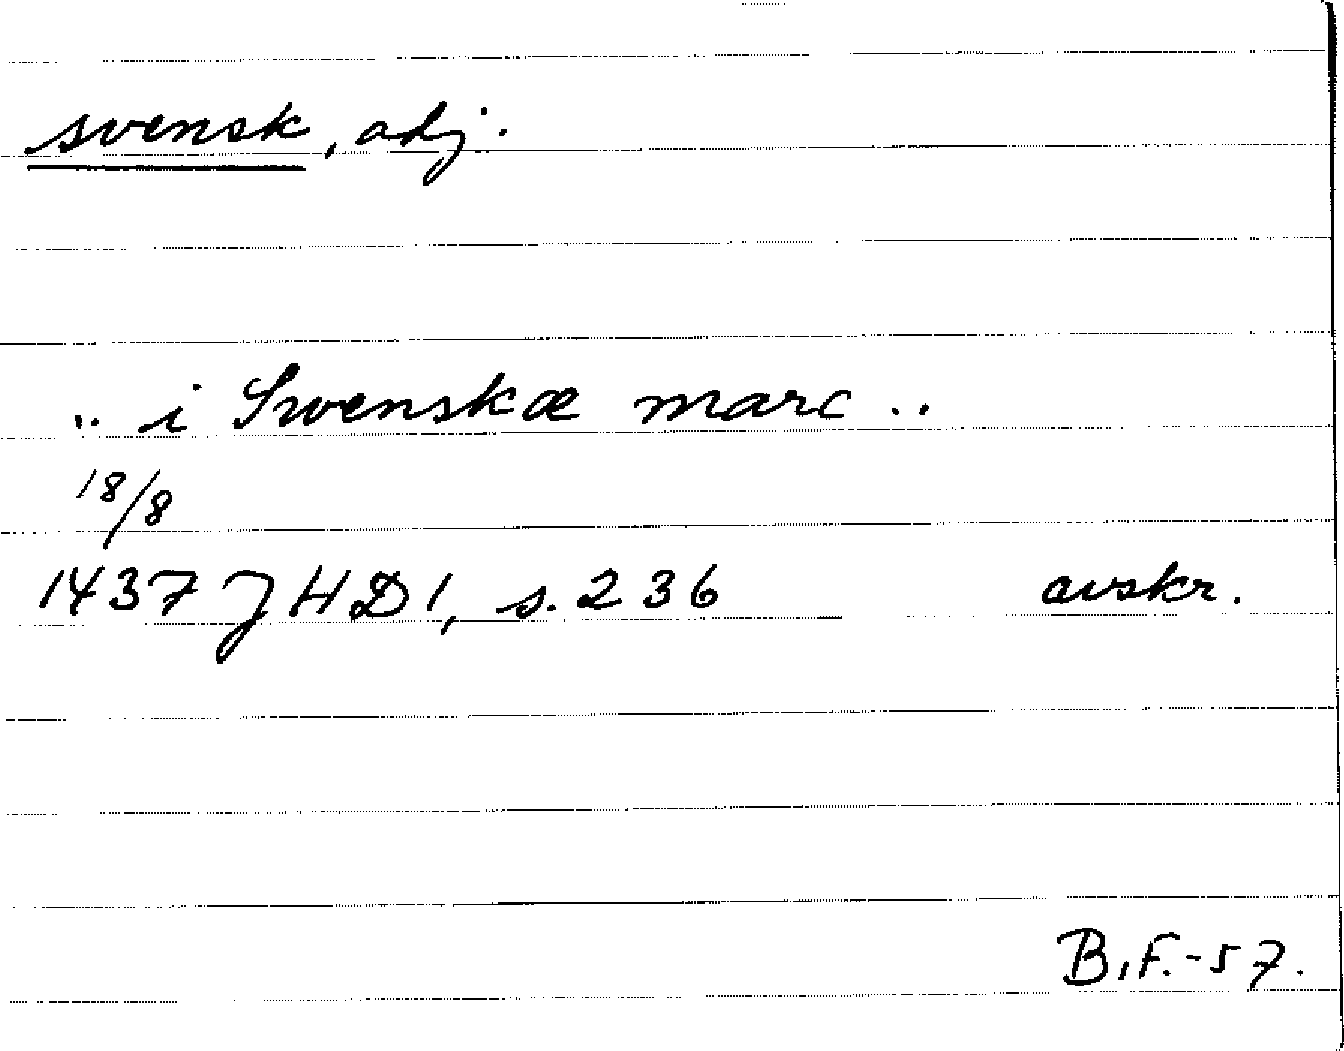 svensk, adj.
.. i Swenskæ marc ..
18/8
1437 JHD 1, s. 236 avskr.
B.F.-57.